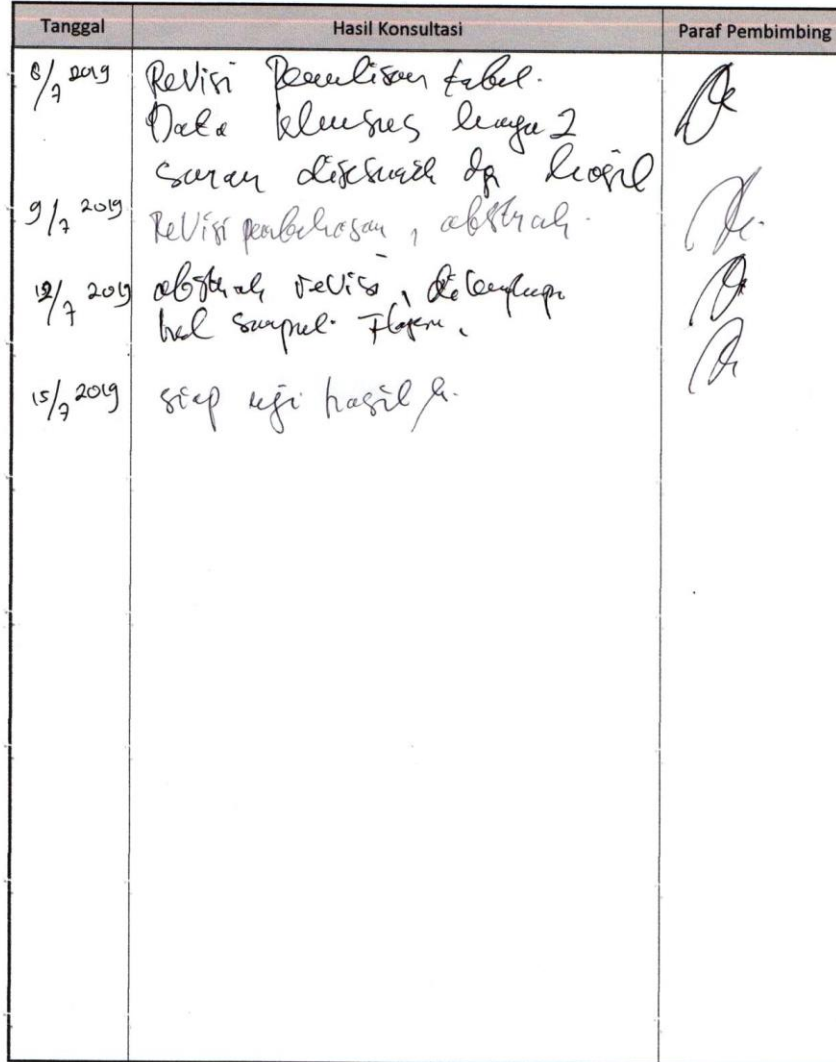 Tanggal Hasil Konsultasi Paraf Pembimbing
8/7 2019 Revisi Penulisan tabel.
Data khusus hanya 2
saran disesuaik dg hasil
9/7 2019 Revisi pembahasan, abstrak.
12/7 2019 abstrak revisi, dilengkapi
hal sampul
15/7 2019 siap uji hasil